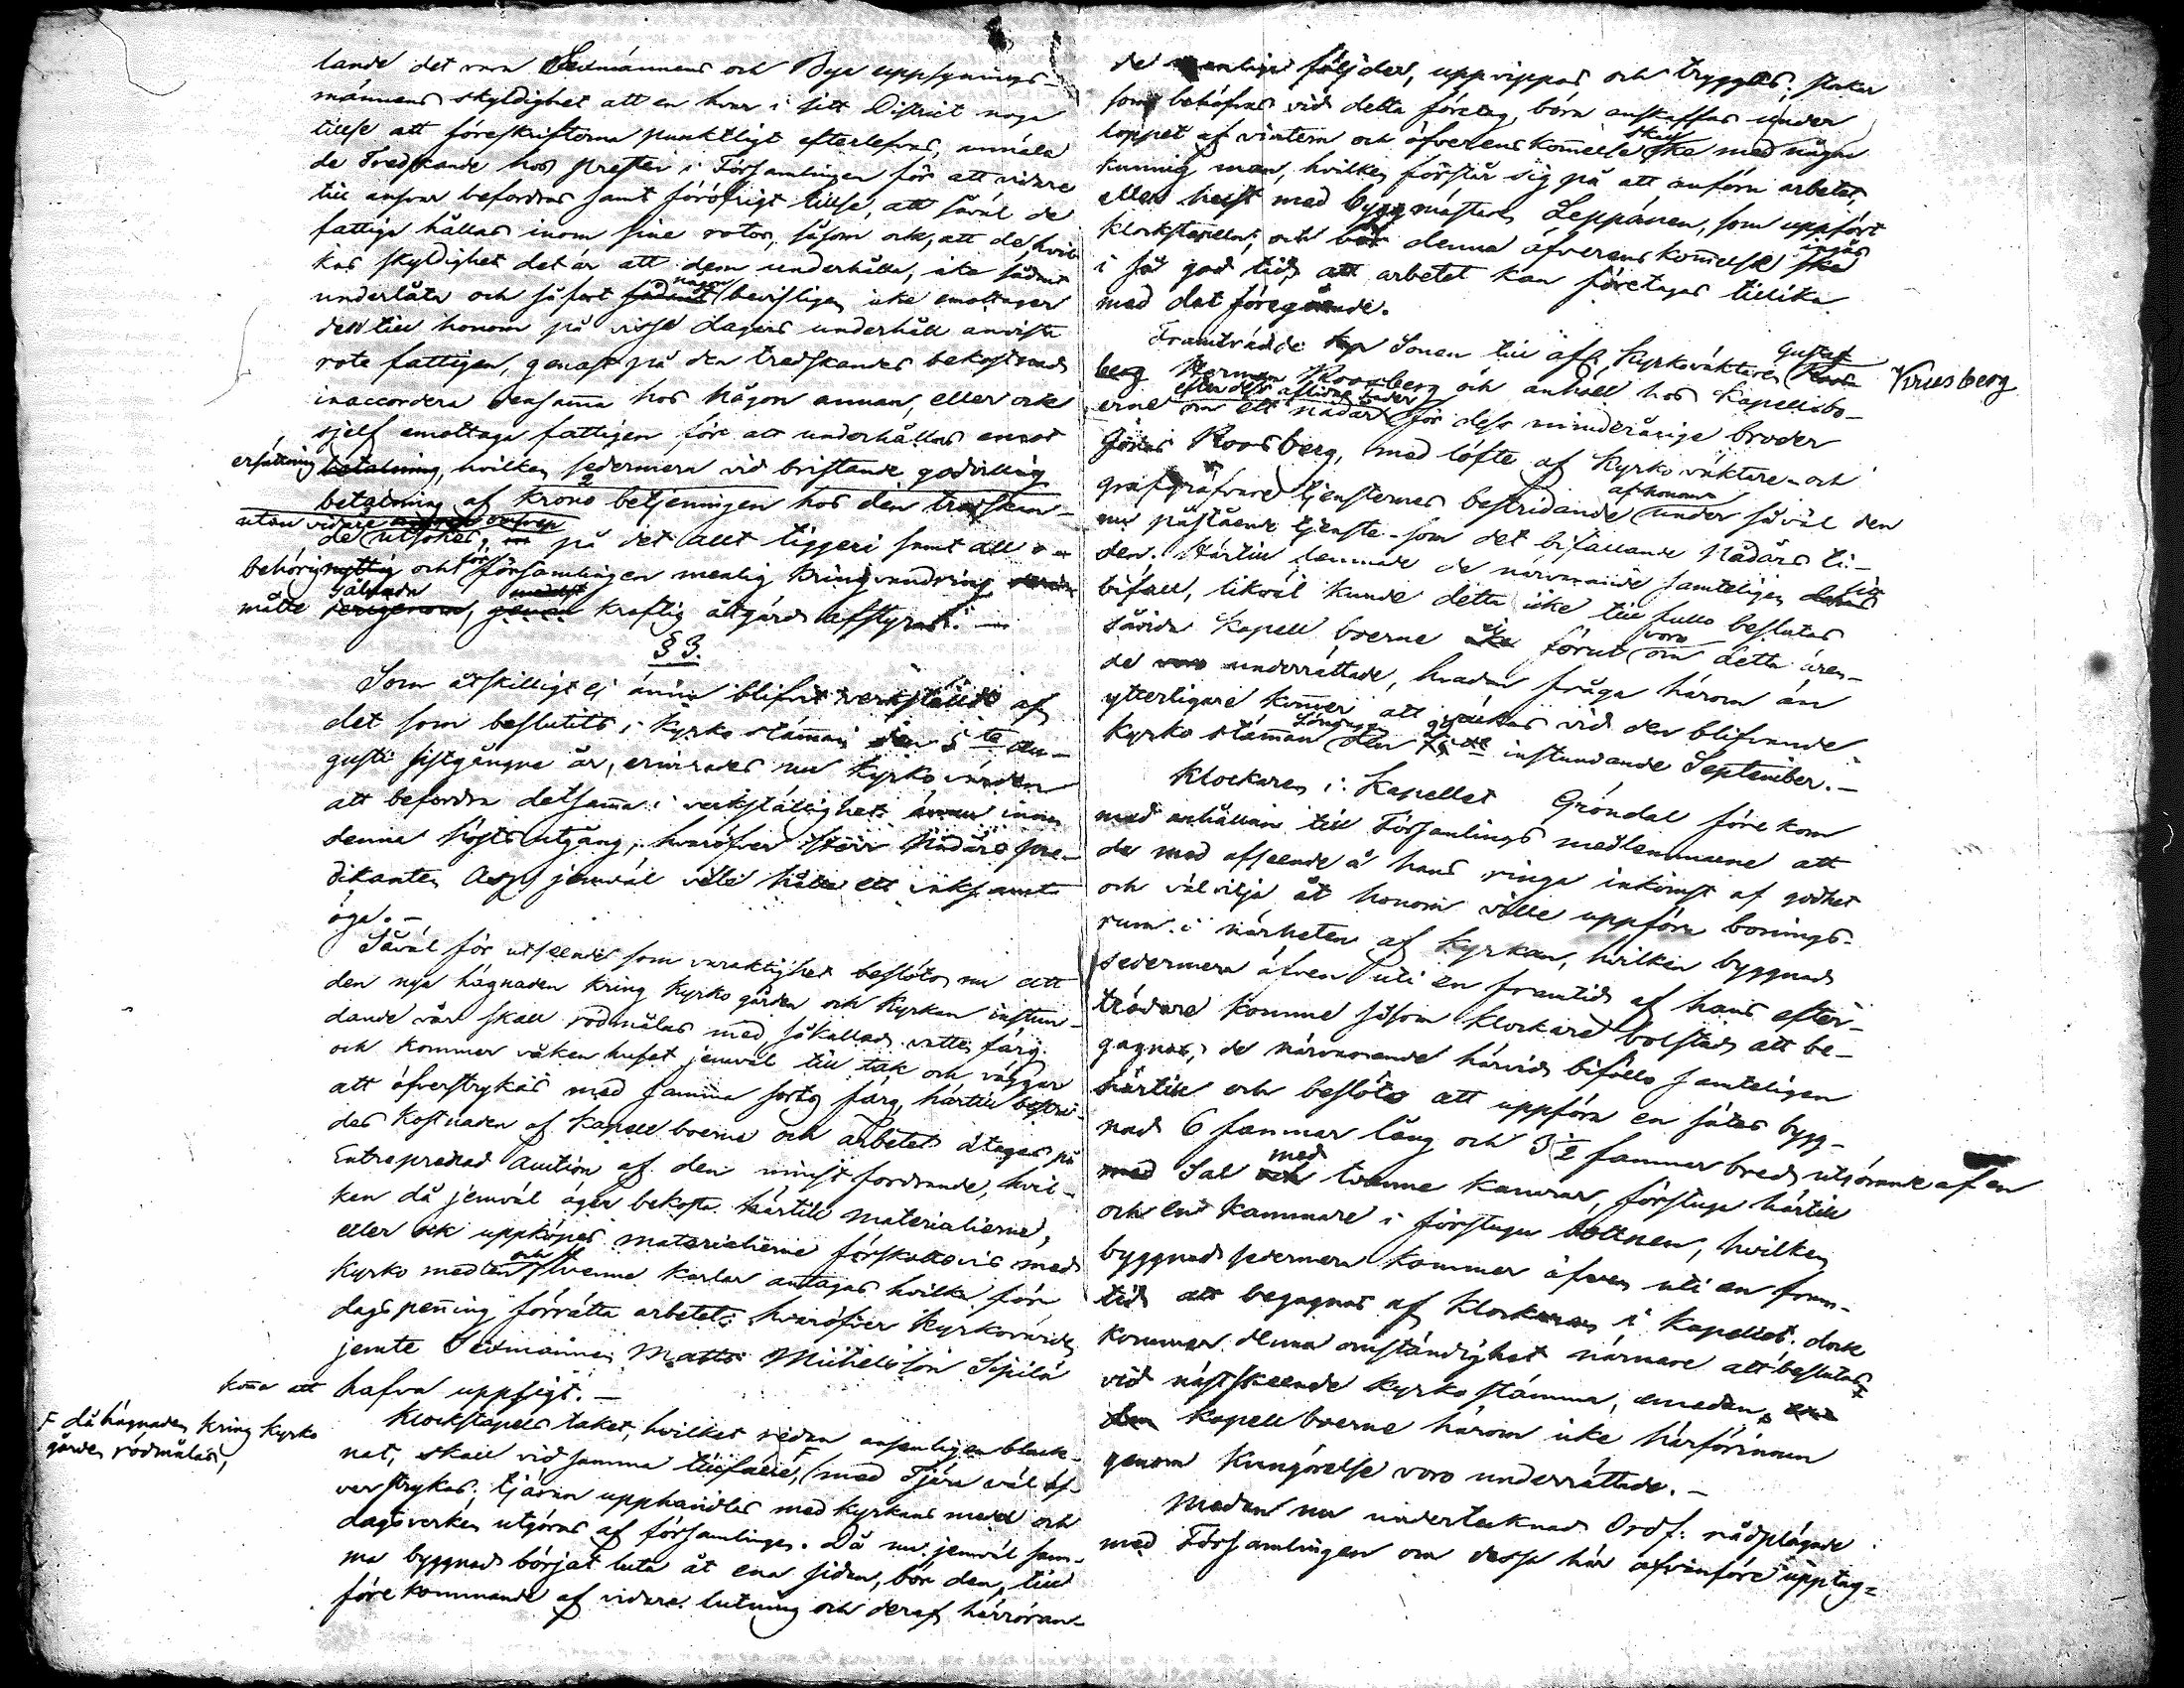 lande det vara Sexmännens och Bya uppsynings-
männens skyldighet att en hvar i sitt District noga
tillse att föreskrifterna punktligt efterlefvas, anmäla
de Tredskande hos Presten i Församlingen för att vidare
till ansvar befordras samt föröfrigt tillse, att såväl de
fattiga hållas inom sine rotor, såsom ock, att de, hvil
kas skyldighet det är att dem underhålla, icke sådant
underlåta och såfort sådant någon bevisligen icke emottager
den till honom på visse dagars underhåll anviste
rote fattigen, genast på den tredskandes bekostnad
inaccordera densamma hos någon annan, eller ock
sjelf emottaga fattigen för att underhållas emot
ersättning betalning, hvilken sedermera vid bristande godvillig
betalning af Krono betjeningen hos den tredskan-
utan vidare
de utsökes, på det allt tiggeri samt all o-
behörig nyttig och för församlingen menlig kringvandring
måtte derigenom, genom kraftig åtgärd afstyras. —
§ 3.
Som åtskilligt ej ännu blifvit verkstäldt af
det som beslutits i Kyrko stämman den 5te Au-
gusti sistgångne år, erinrades nu Kyrko värden
att befordra detsamma i verkställighet innan
denna hösts utgång, hvaröfver Herr Nådårs Pre-
dikanten Asp jemväl ville hålla ett vaksamt
öga. —
Såväl för utseendet som varaktighet beslöts nu att
den nya hägnaden kring Kyrko gården och Kyrkan instun-
dande vår skall rödmålas med såkallad vatten färg
och kommer väken huset jemväl till tak och väggar
att öfverstrykas med samma sorts färg, härtill bestri-
des Kostnaden af Kapell boerne och arbetet åtages på
Entreprenad Auction af den minst fordrande, hvil-
ken då jemväl äger bekosta härtill materialierne,
eller ock uppköpes materialierne förskottsvis med
Kyrko medlen och tvenne karlar antagas hvilka för
dagspenning förrätta arbetet, hvaröfver Kyrkovärden
jemte Sexmannen Matts Michelsson Sipilä
koma att hafva uppsigt. —
Klockstapels taket, hvilket redan ansenligen blek-
F då hägnaden kring Kyrko
gården rödmålas,
nat, skall vid samma tillfälle, F med Tjära väl öf-
verstrykas; tjäran upphandlas med kyrkans medel och
dagsverken utgöras af församlingen. Då nu jemväl sam-
ma byggnad börjat luta åt ena sidan, bör den, till
före kommande af vidare lutning och deraf härröran-
de menliga följder, uppvippas och tryggas; stockar
som behöfvas vid detta företag, böra anskaffas under
loppet af vintern och öfverenskommelse ske med någon
kunnig man, hvilken förstår sig på att anföra arbetet,
eller helst med byggmästaren Leppänen, som uppfört
klockstapeln, och bör denna öfverenskommelse ske ingås
i så god tid, att arbetet kan företagas tillika
med det föregående.
Framträdde Sonen till afl. Kyrkoväktaren Gustaf
Kruusberg
berg Herman Roosberg och anhöll hos Kapellbo-
erne om ett nådår efter dess aflidne fader för dess minderårige broder
Roosberg, med löfte af Kyrko väktare- och
grafgräfvare tjensternes bestridande af honom under såväl den
nu påstående tjenste- som det bifallande Nådårs ti-
den. Härtill lemnade de närvarande samteligen sitt
bifall, likväl kunde detta icke till fullo beslutas
såvida Kapell boerne ej förut voro om detta ären-
de underrättade, hvadan fråga härom än
ytterligare kommer att väckas vid den blifvande
Kyrko stämman Söndagen den instundande September. —
Klockaren i Kapellet Gröndal förekom
med anhållan till Församlings medlemmarne att
de med afseende å hans ringa inkomst af godhet
och välvilja åt honom ville uppföra bonings-
rum i närheten af Kyrkan, hvilken byggnad
sedermera äfven uti en framtid af hans efter-
trädare komme såsom Klockare bolstad att be-
gagnas, de närvarande härvid biföllo samteligen
härtill och beslöts att uppföra en sådan bygg-
nad 6 famnar lång och 3½ famnar bred, utgörande af en
med Sal med tvenne kamrar, förstuga härtill
och en kammare i förstugu bottnen, hvilken
byggnad sedermera kommer äfven uti en fram-
tid att begagnas af Klockaren i Kapellet. dock
kommer denna omständighet närmare att beslutas
vid nästskeende Kyrko stämma, emedan
Kapell boerne härom icke härförinnan
genom Kungörelse voro underrättade. —
Medan nu undertecknad Ordf: rådplägade
med Församlingen om dessa här ofvanföre upptag-